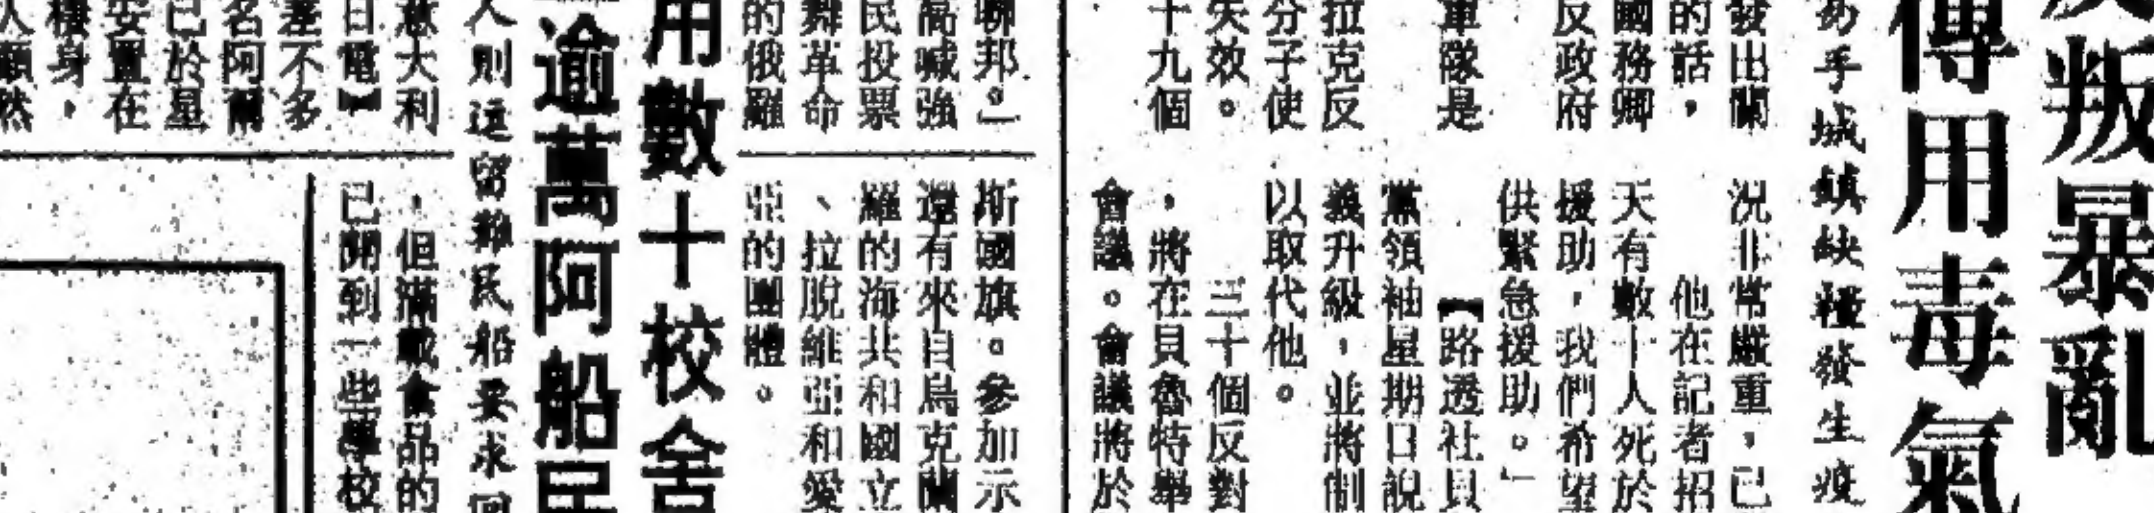 叛暴亂
傳用毒氣
易手城鎮缺糧發生疫
發出關
的話，
國務卿
反政府
軍隊是
拉克反
分子使
失效。
十九個
況非常嚴重，已
他在記者招
天有數十人死於
援助，我們希望
供緊急援助。」
【路透社貝
黨領袖星期日說
義升級，並將制
以取代他。
三十個反對
，將在貝魯特舉
會議。會議將於
聯邦。」
高喊強
民投票
舞革命
的俄羅
斯國旗。參加示
還有來自烏克蘭
羅的海共和國立
、拉脫維亞和愛
亞的團體。
用數十校舍
逾萬阿船民
人則逗留難民船要求回
意大利
日電】
差不多
名阿爾
已於星
安置在
棲身，
人顯然
，但滿載食品的
已開到一些學校